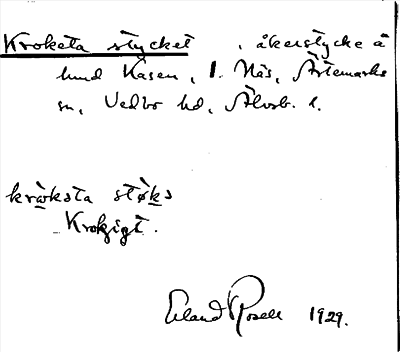 Kroketa stycket, åkerstycke å
lund Kasen, l. Näs, Ärtemarks
sn, Vedbo hd, Älvsb. l.
krωksta støks
Krokigt.
Erland Rosell 1929.